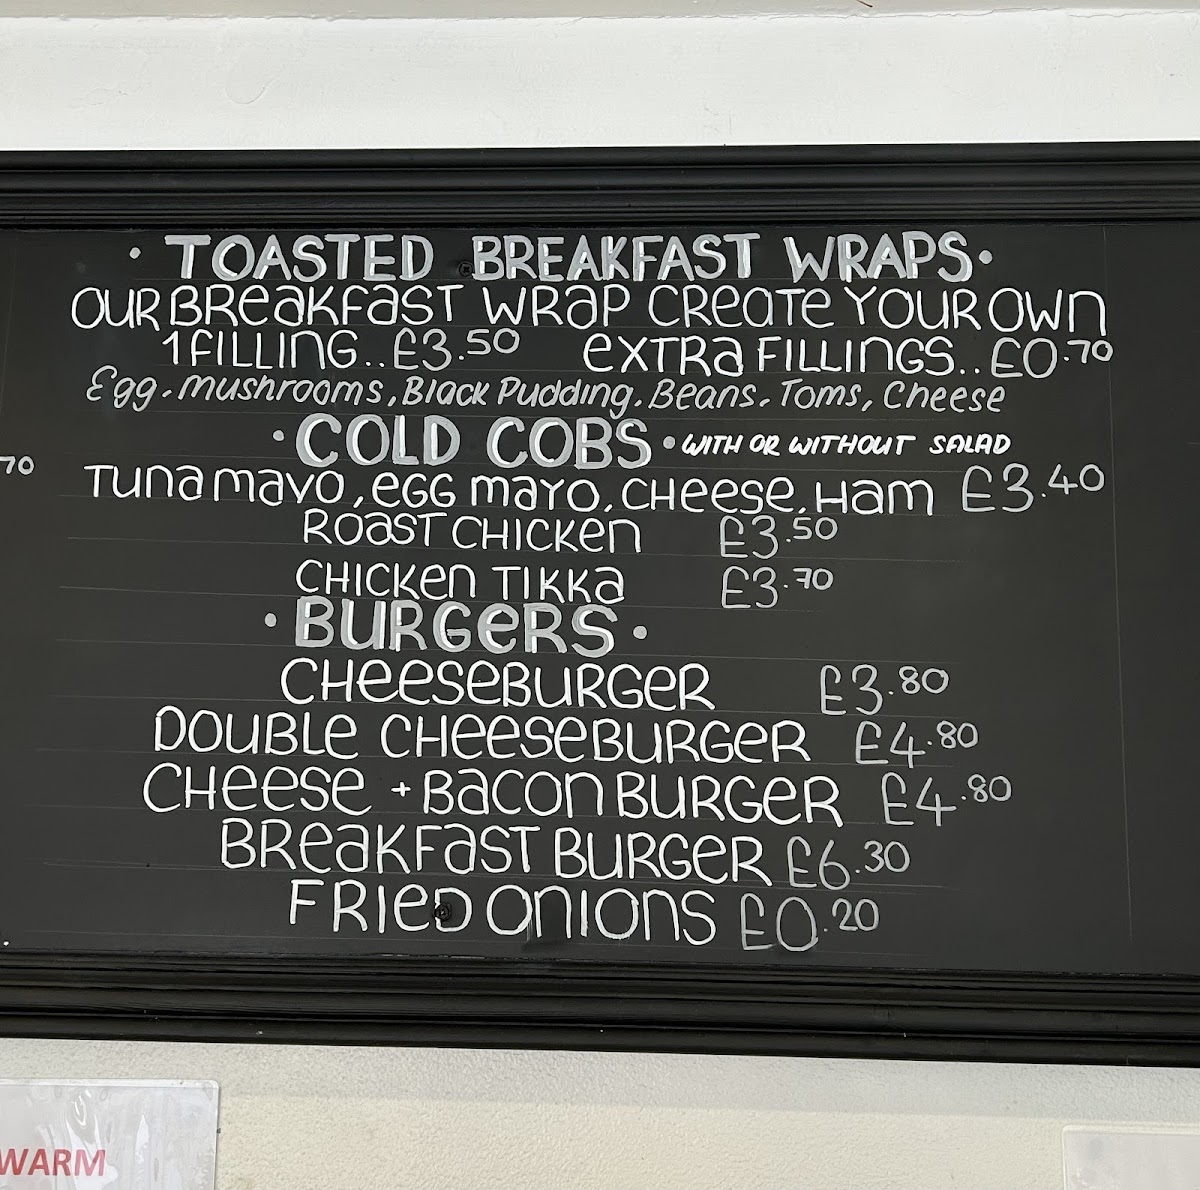 • TOASTED BREAKFAST WRAPS •
OUR BREAKFAST WRAP CREATE YOUR OWN
1 FILLING.. £3.50 EXTRA FILLINGS.. £0.70
Egg, Mushrooms, Black Pudding, Beans, Toms, Cheese
• COLD COBS • WITH OR WITHOUT SALAD
70
TUNA MAYO, EGG MAYO, CHEESE, HAM £3.40
ROAST CHICKEN £3.50
CHICKEN TIKKA £3.70
• BURGERS •
CHEESEBURGER £3.80
DOUBLE CHEESEBURGER £4.80
CHEESE + BACON BURGER £4.80
BREAKFAST BURGER £6.30
FRIED ONIONS £0.20
WARM